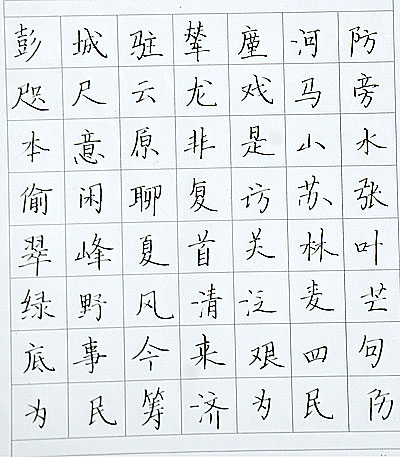 彭城驻辇廑河防
咫尺云龙戏马旁
本意原非是山水
偷闲聊复访苏张
翠峰夏首关林叶
绿野风清泛麦芒
底事今来艰四句
为民筹济为民防